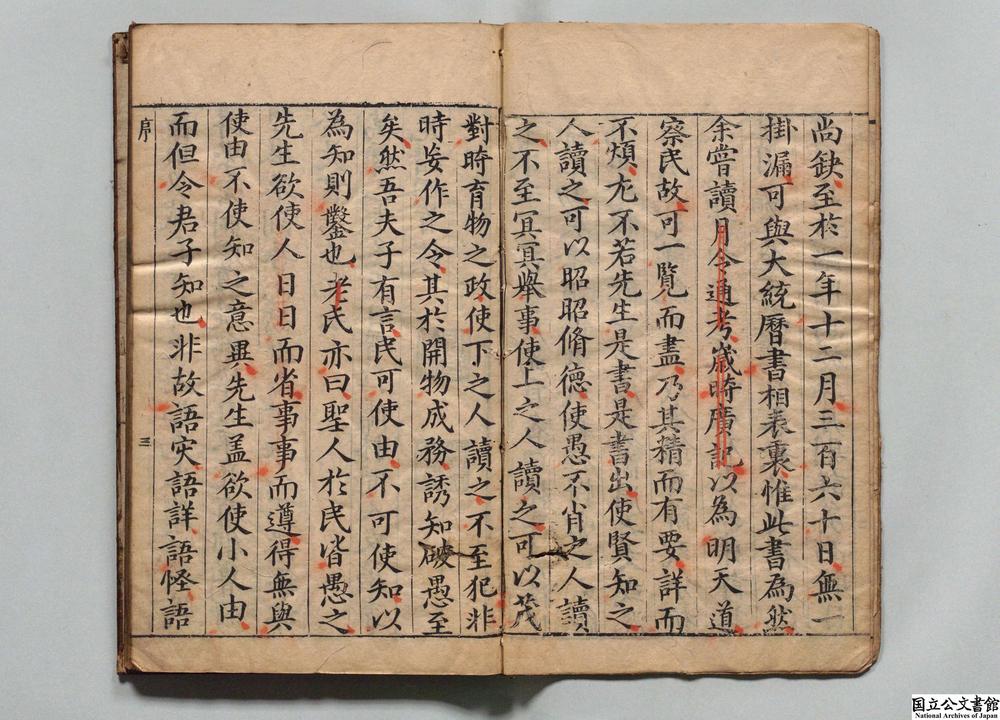 尚缺至於一年十二月三百六十日無一
掛漏可與大統曆書相表裏惟此書為然
余嘗讀月令通考歲時廣記以為明天道
察民故可一覽而盡乃其精而有要詳而
不煩尤不若先生是書是書出使賢知之
人讀之可以昭昭脩德使愚不肖之人讀
之不至冥冥舉事使上之人讀之可以茂
對時育物之政使下之人讀之不至犯非
時妄作之令其於開物成務誘知破愚至
矣然吾夫子有言民可使由不可使知以
為知則鑿也老氏亦曰聖人於民皆愚之
先生欲使人日日而省事事而遵得無與
使由不使知之意異先生盖欲使小人由
而但令君子知也非故語災語詳語怪語
序
三
国立公文書館
National Archives of Japan